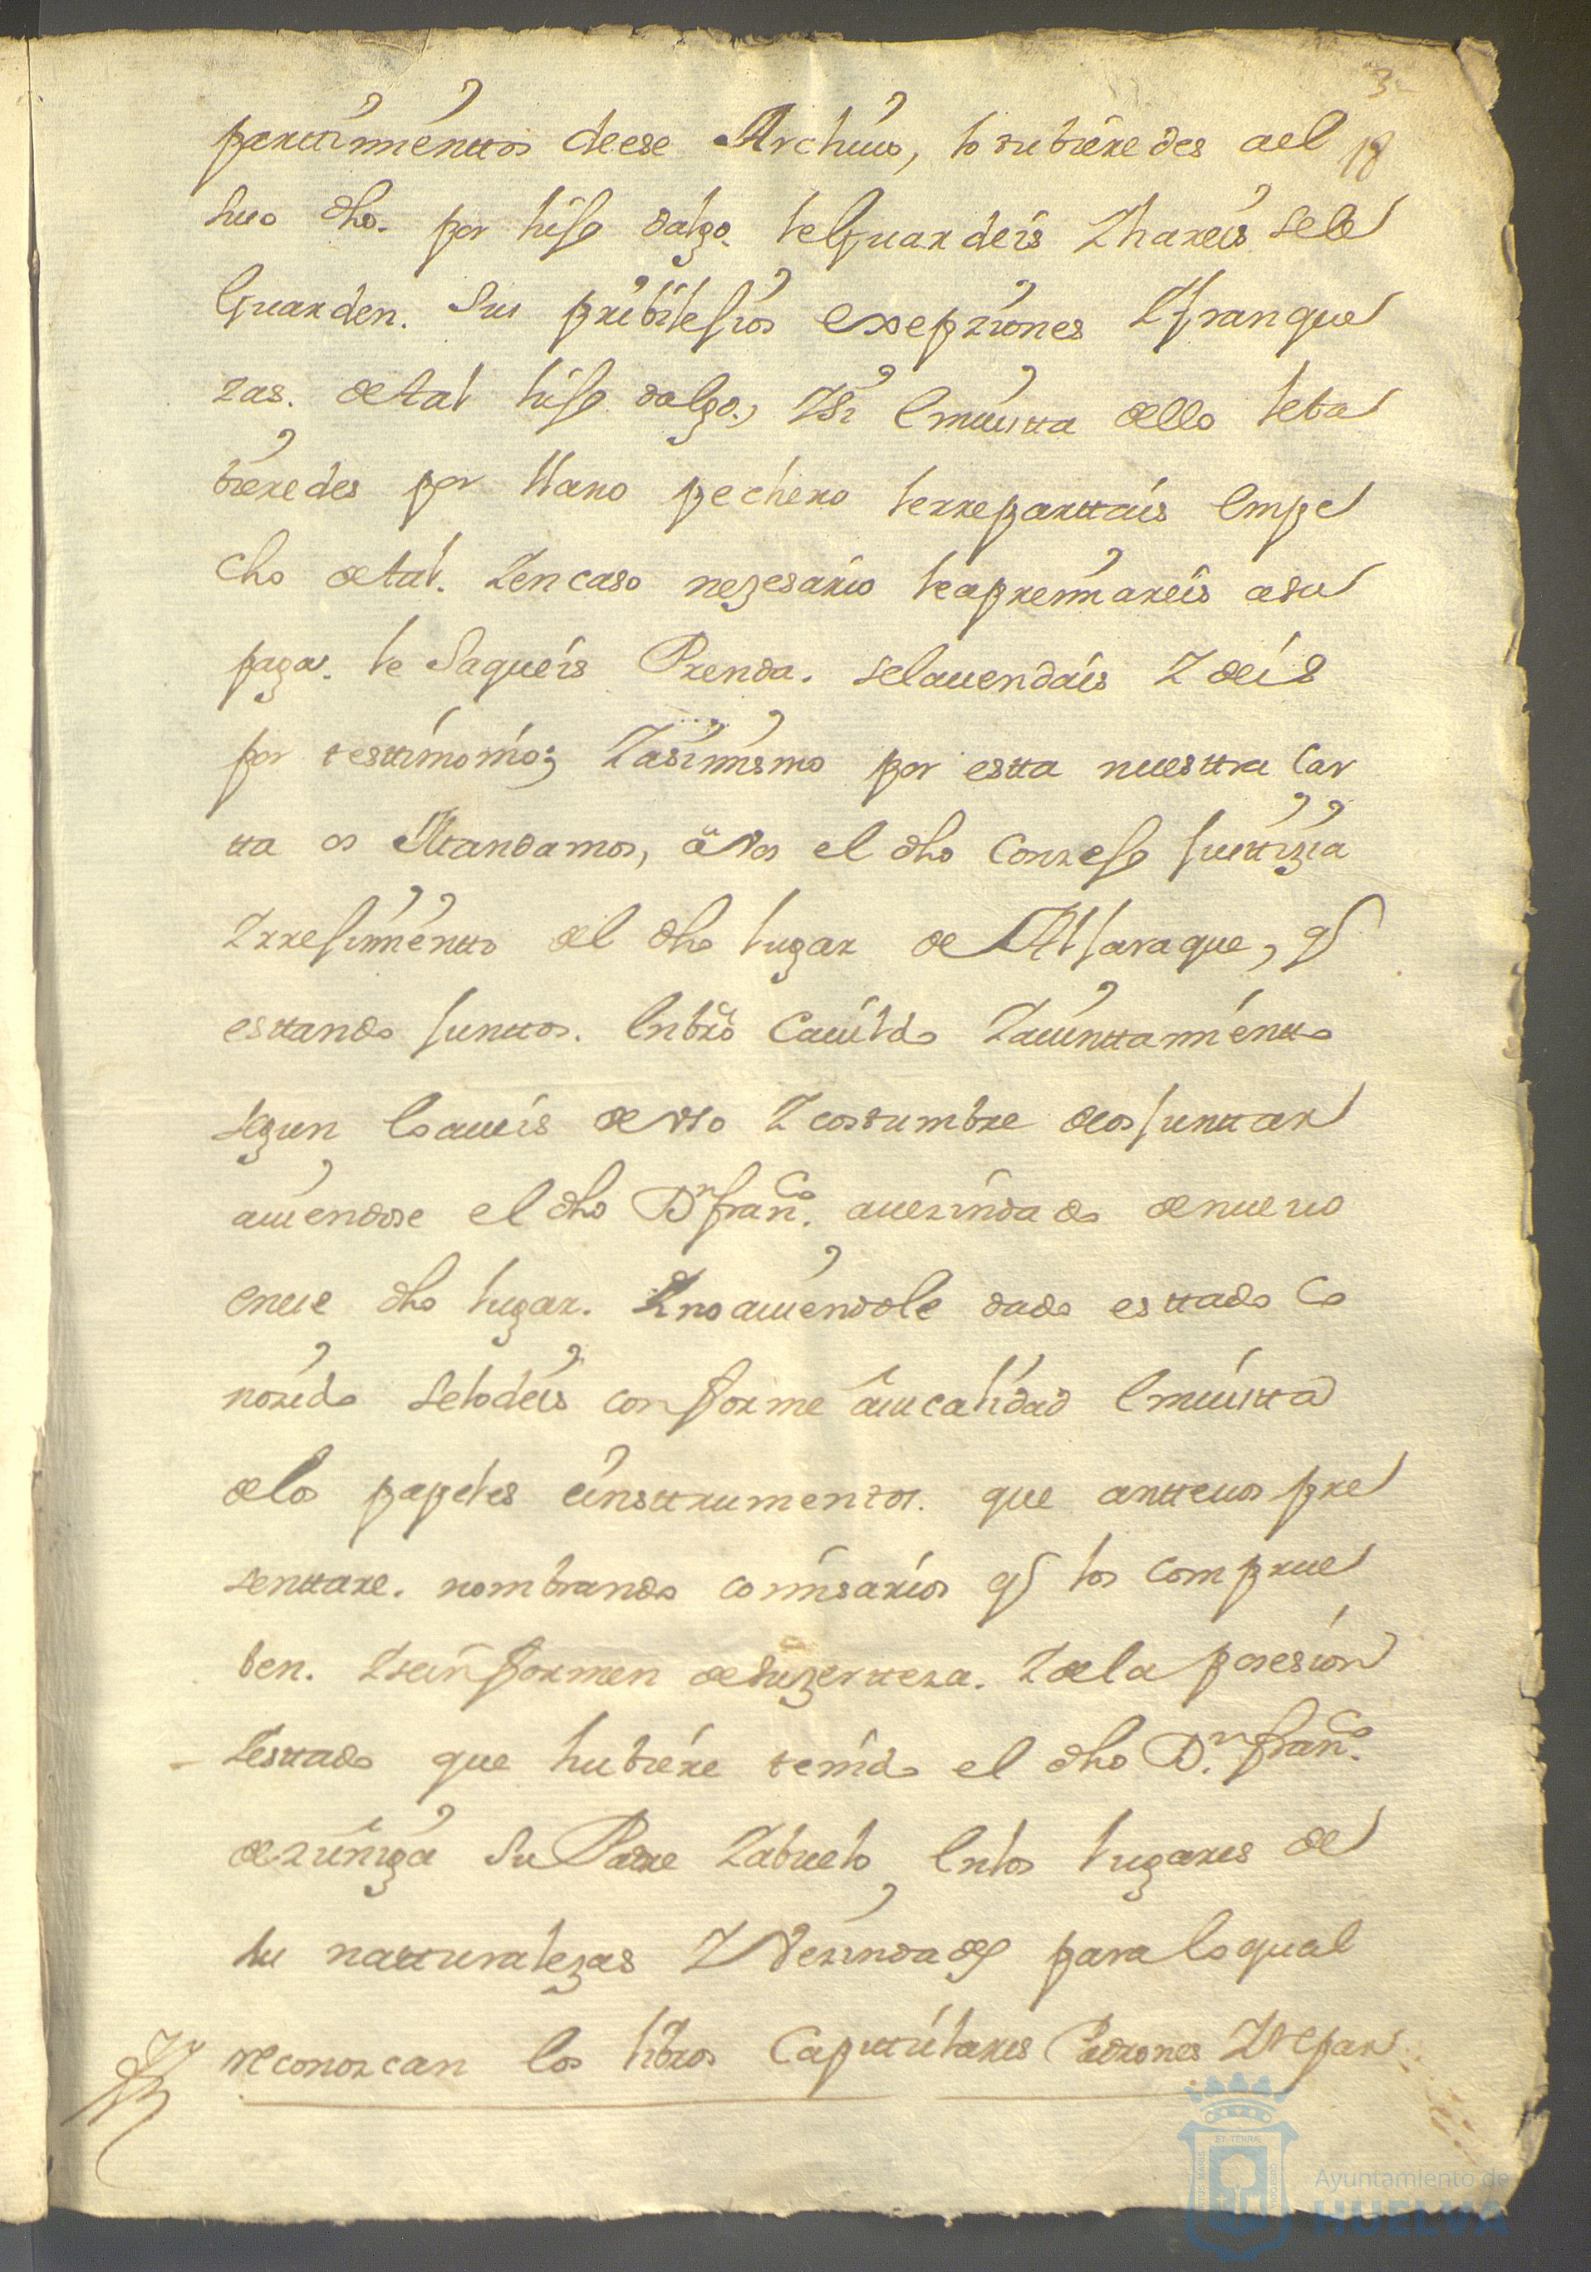 3
18
parttimienttos deese Archiuo, lo tubieredes ael
suso dho. por hijo dalgo. le Guardeis Y hareis sele
Guarden. Sus pribilejios exepziones Y franque
zas. de tal hijo dalgo, Y Si En uistta dello le ta
bieredes por llano pechero le rreparttais En pe
cho de tal. Y en caso nezesario le apremiareis a su
paga. le Saqueis Prenda. se la uendais Y deis
por testtimonio; Y asi mismo por estta nuesttra Car
tta os Mandamos, a Vos el dho Conzejo Justtizia
Y rrejimientto del dho lugar de Aljaraque, q
esttando Junttos. En bro Cauildo Y aiunttamientto
segun lo aueis de Vso Y costumbre de os Junttar
auiendose el dho Dn franco. auezindado de nueuo
en ese dho lugar. Y no auiendole dado esttado Co
nozido se lo deis conforme a su calidad En uistta
de los papeles e insttrumentos. que antte uos pre
senttare. nombrando comisarios q los comprue
ben. Y se informen de su zertteza. Y de la posesion
Y esttado que hubiere tenido el dho Dn. franco.
de zuñiga Su Padre Y abuelo En los lugares de
su natturalezas Y Vezindades para lo qual
reconozcan los libros Capittulares Padrones Y repar
ET TERRÆ
Ayuntamiento de
HUELVA